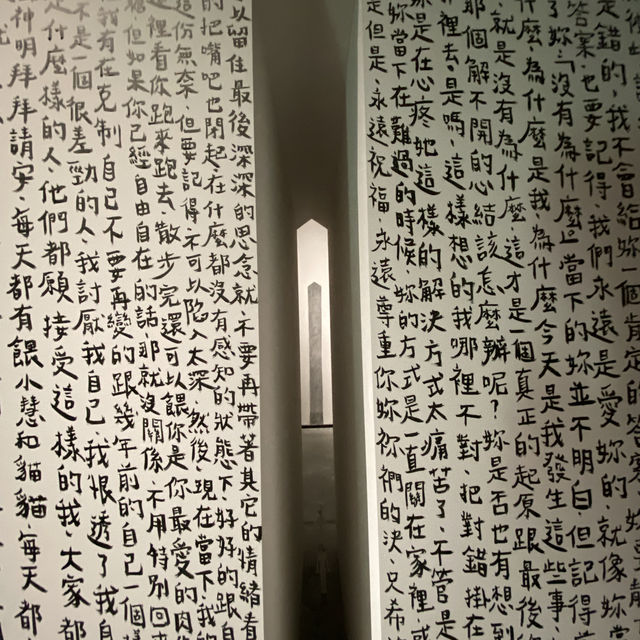 是錯的,我不會給妳一個肯定的答案
答案,也要記得,我們永遠是愛妳的,就像妳
了妳「沒有為什麼」當下的妳並不明白,但記得當
什麼為什麼是我,為什麼今天是我發生這些事,
就是沒有為什麼,這才是一個真正的起原跟最後
那個解不開的心結該怎麼辦呢?妳是否也有想到
裡去,是嗎,這樣想的我哪裡不對,把對錯掛在
妳是在心疼她這樣的解決方式太痛苦了,不管是
妳當下在難過的時候,妳的方式是一直關在家裡,或
是但是,永遠祝福,永遠尊重你妳祢們的決,只希
以留住最後深深的思念就,不要再帶著其它的情緒看
的把嘴吧也閉起,在什麼都沒有感知的狀態下,好好的跟自
這份無奈,但要記得,不可以陷入太深,然後,現在當下,我的
裡看你跑來跑去,散步完還可以餵你是你最愛的肉
但如果你已經自由自在的話那就沒關係,不用特別回
我有在克制自己不要再變的跟幾年前的自己一個樣
不是一個很差勁的人,我討厭我自己,我恨透了我自
是什麼樣的人,他們都願接受這樣的我,大家都
神明拜拜請安,每天都有餵小慧和貓貓,每天都